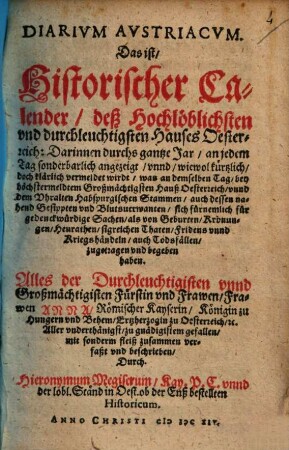 4
DIARIVM AVSTRIACVM.
Das ist/
Historischer Ca-
lender / deß Hochlöblichsten
vnd durchleuchtigsten Hauses Oester-
reich: Darinnen durchs gantze Jar / an jedem
Tag sonderbarlich angezeigt / vnnd / wiewol kürtzlich/
doch klärlich vermeldet wirdt / was an demselben Tag / bey
höchstermeldtem Großmächtigsten Hauß Oesterreich / vnnd
dem Vhralten Habspurgischen Stammen / auch dessen na-
hend Gesypten vnd Blutsuerwanten / sich fürnemlich für
gedenckwürdige Sachen / als von Geburten / Krönun-
gen / Heurathen / sigreichen Thaten / Fridens vnnd
Kriegshändeln / auch Todsfällen/
zugetragen vnd begeben
haben.
Alles der Durchleuchtigisten vnnd
Großmächtigisten Fürstin vnd Frawen / Fra-
wen ANNA / Römischer Kayserin / Königin zu
Hungern vnd Behem / Ertzherzogin zu Oesterreich / ꝛc.
Aller vnderthänigst / zu gnädigistem gefallen/
mit sonderm fleiß zusammen ver-
faßt vnd beschrieben/
Durch.
Hieronymum Megiserum / Kay. P. C. vnnd
der löbl. Ständ in Oest. ob der Enß bestellten
Historicum.
ANNO CHRISTI CIↃ IↃC XIV.